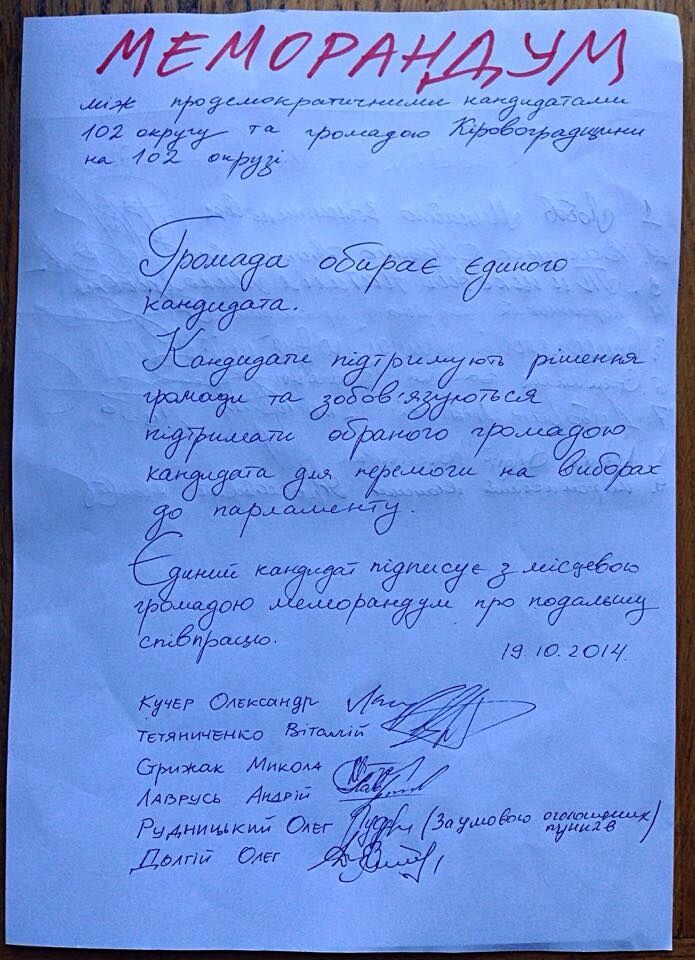 МЕМОРАНДУМ
між продемократичними кандидатами
102 округу та громадою Кіровоградщини
на 102 окрузі.
Громада обирає єдиного
кандидата.
Кандидати підтримують рішення
громади та зобов'язуються
підтримати обраного громадою
кандидата для перемоги на виборах
до парламенту.
Єдиний кандидат підписує з місцевою
громадою меморандум про подальшу
співпрацю.
19.10.2014
Кучер Олександр
Тетяниченко Віталій
Стрижак Микола
Лаврусь Андрій
Рудницький Олег (За умовою оголошених
пунктів)
Долгій Олег